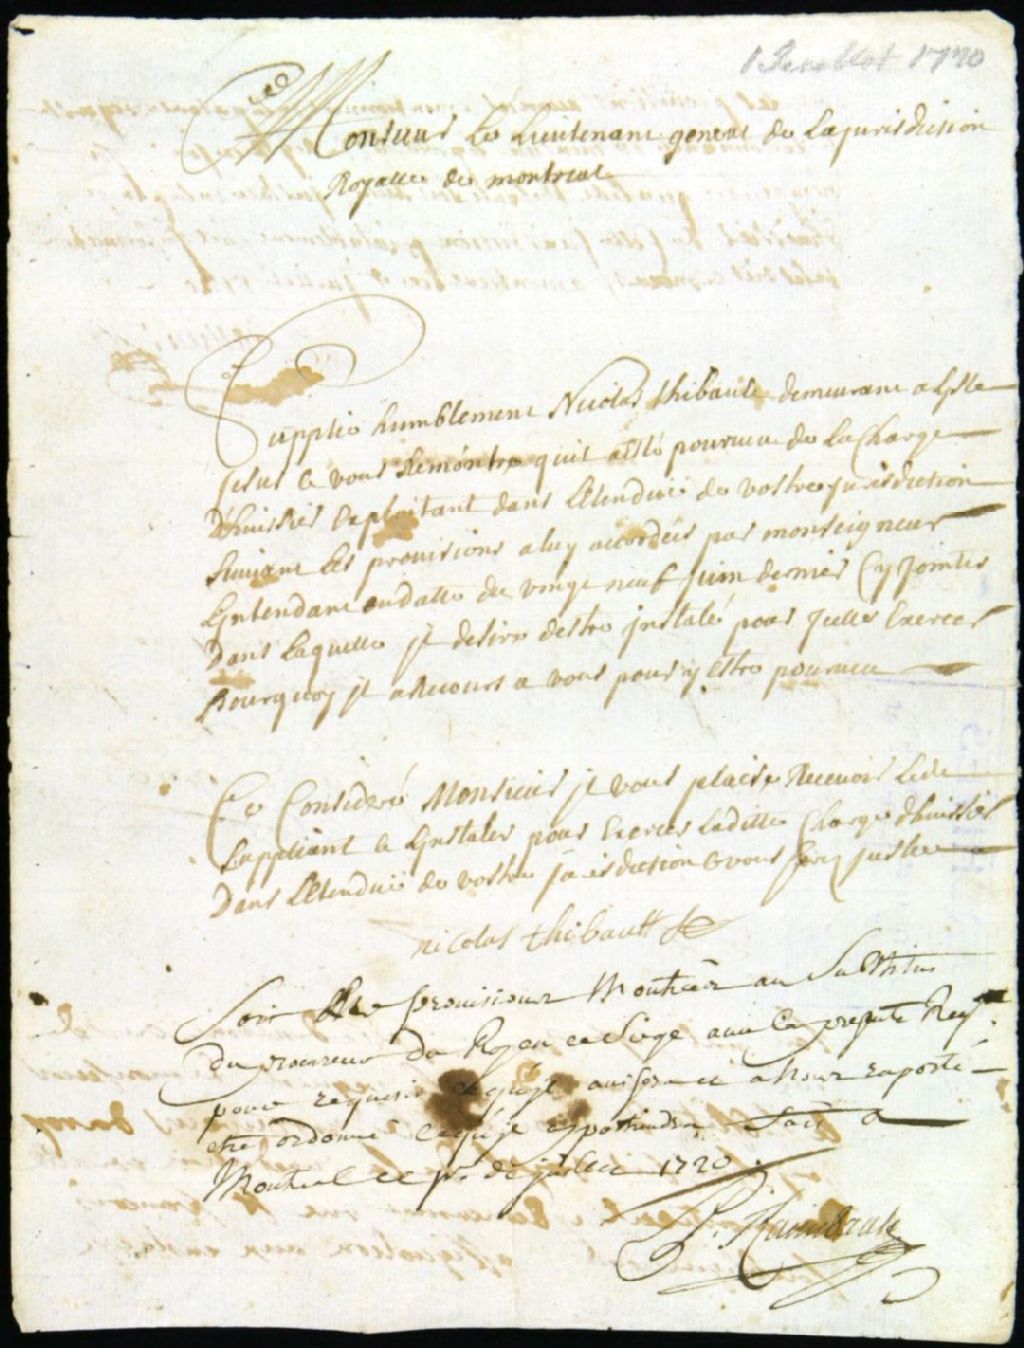 1er Juillet 1720
Monsieur Le Lieutenant general de La jurisdiction
Royalle de montreal
Supplie humblement Nicolas thibault demeurant a Lisle
jesus Et vous Remontre quil a Esté pourveu de La Charge
D'huissier Exploitant dans L'Etenduë de vostre jurisdiction
suivant Les provisions a luy accordées par monseigneur
Lintendant en datte du vingt neuf juin dernier Cy Jointes
Dans Laquelle jl desire destre jnstalé pour Jcelle Exercer
Pourquoy jl a Recours a vous pour y Estre pourveu
Ce Consideré Monsieur jl vous plaise Recevoir Ledt
Suppliant Et Linstaler pour Exercer Laditte Charge d'huissier
Dans L'Etenduë de vostre jurisdiction Et vous ferez justice
nicolas thibault
Soit provisions Montrées au Substitut
du procureur du Roy en ce Siege avec La presente Reqte
pour requerir ce quil avisera et a Nous raporté
etre ordonné ce quil appartiendra fait a
Montreal ce pr de juillet 1720.
P. Raimbault